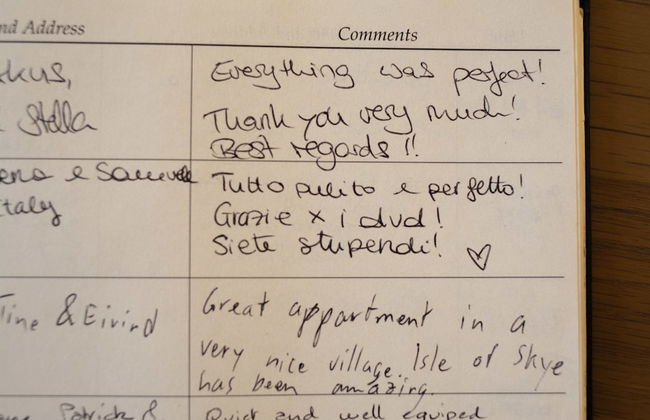 nd Address
Comments
kus,
Everything was perfect!
Stella
Thank you very much!
Best regards !!
ena e Samuele
Tutto pulito e perfetto!
Italy
Grazie x i dvd!
Siete stupendi!
Tine & Eivind
Great appartment in a
very nice village. Isle of Skye
has been amazing.
Patrick &
Quiet and well equiped